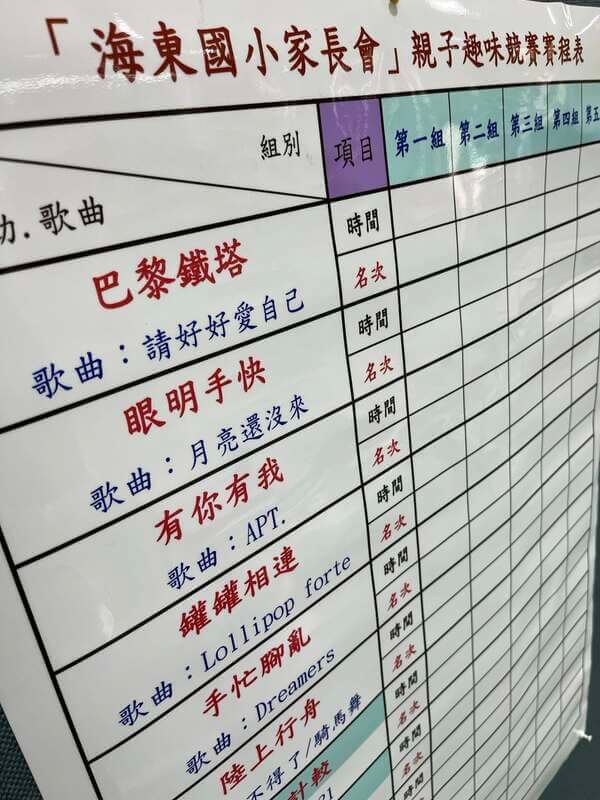 「海東國小家長會」親子趣味競賽賽程表
組別 項目 第一組 第二組 第三組 第四組 第五
歌曲
巴黎鐵塔 時間
歌曲：請好好愛自己 名次
眼明手快 時間
歌曲：月亮還沒來 名次
有你有我 時間
歌曲：APT. 名次
罐罐相連 時間
歌曲：Lollipop forte 名次
手忙腳亂 時間
歌曲：Dreamers 名次
陸上行舟 時間
不得了/騎馬舞 名次
計較 時間
名次
時間
名次
時間